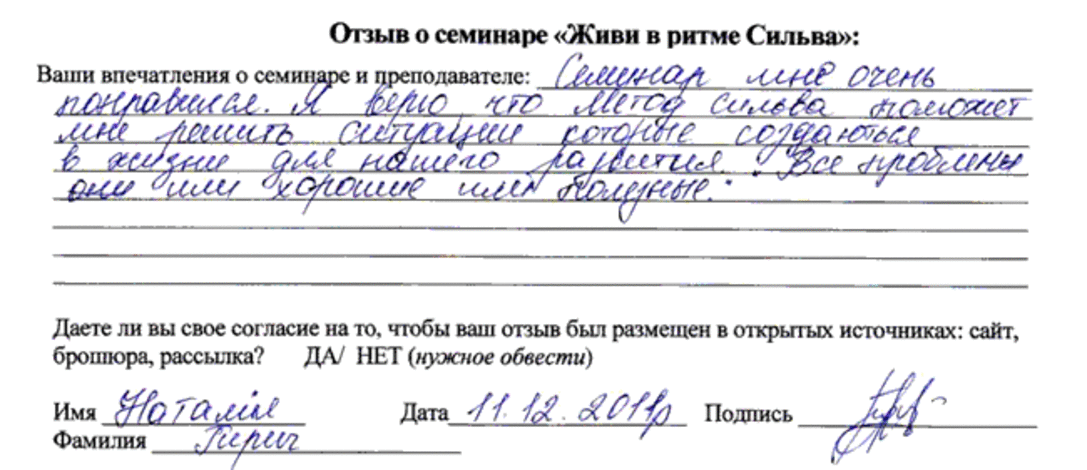 Отзыв о семинаре «Живи в ритме Сильва»:
Ваши впечатления о семинаре и преподавателе: Семинар мне очень
понравился. Я верю что метод сильва поможет
мне решить ситуации которые создаються
в жизни для нашего развития. Все проблемы
они или хорошие или полезные.
Даете ли вы свое согласие на то, чтобы ваш отзыв был размещен в открытых источниках: сайт,
брошюра, рассылка? ДА/ НЕТ (нужное обвести)
Имя Наталія Дата 11.12.2011р Подпись
Фамилия